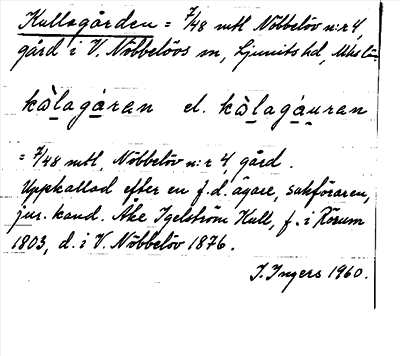 Kullagården = 7/48 mtl Nöbbelöv n:r 4,
gård i V. Nöbbelövs sn, Ljunits hd,
kùlagåran el. kùlagáuran
= 7/48 mtl, Nöbbelöv n:r 4, gård.
Uppkallad efter en f.d. ägare, sakföraren,
jur. kand. Åke Igelström Kull, f. i Rörum
1803, d. i V. Nöbbelöv 1876.
I. Ingers 1960.